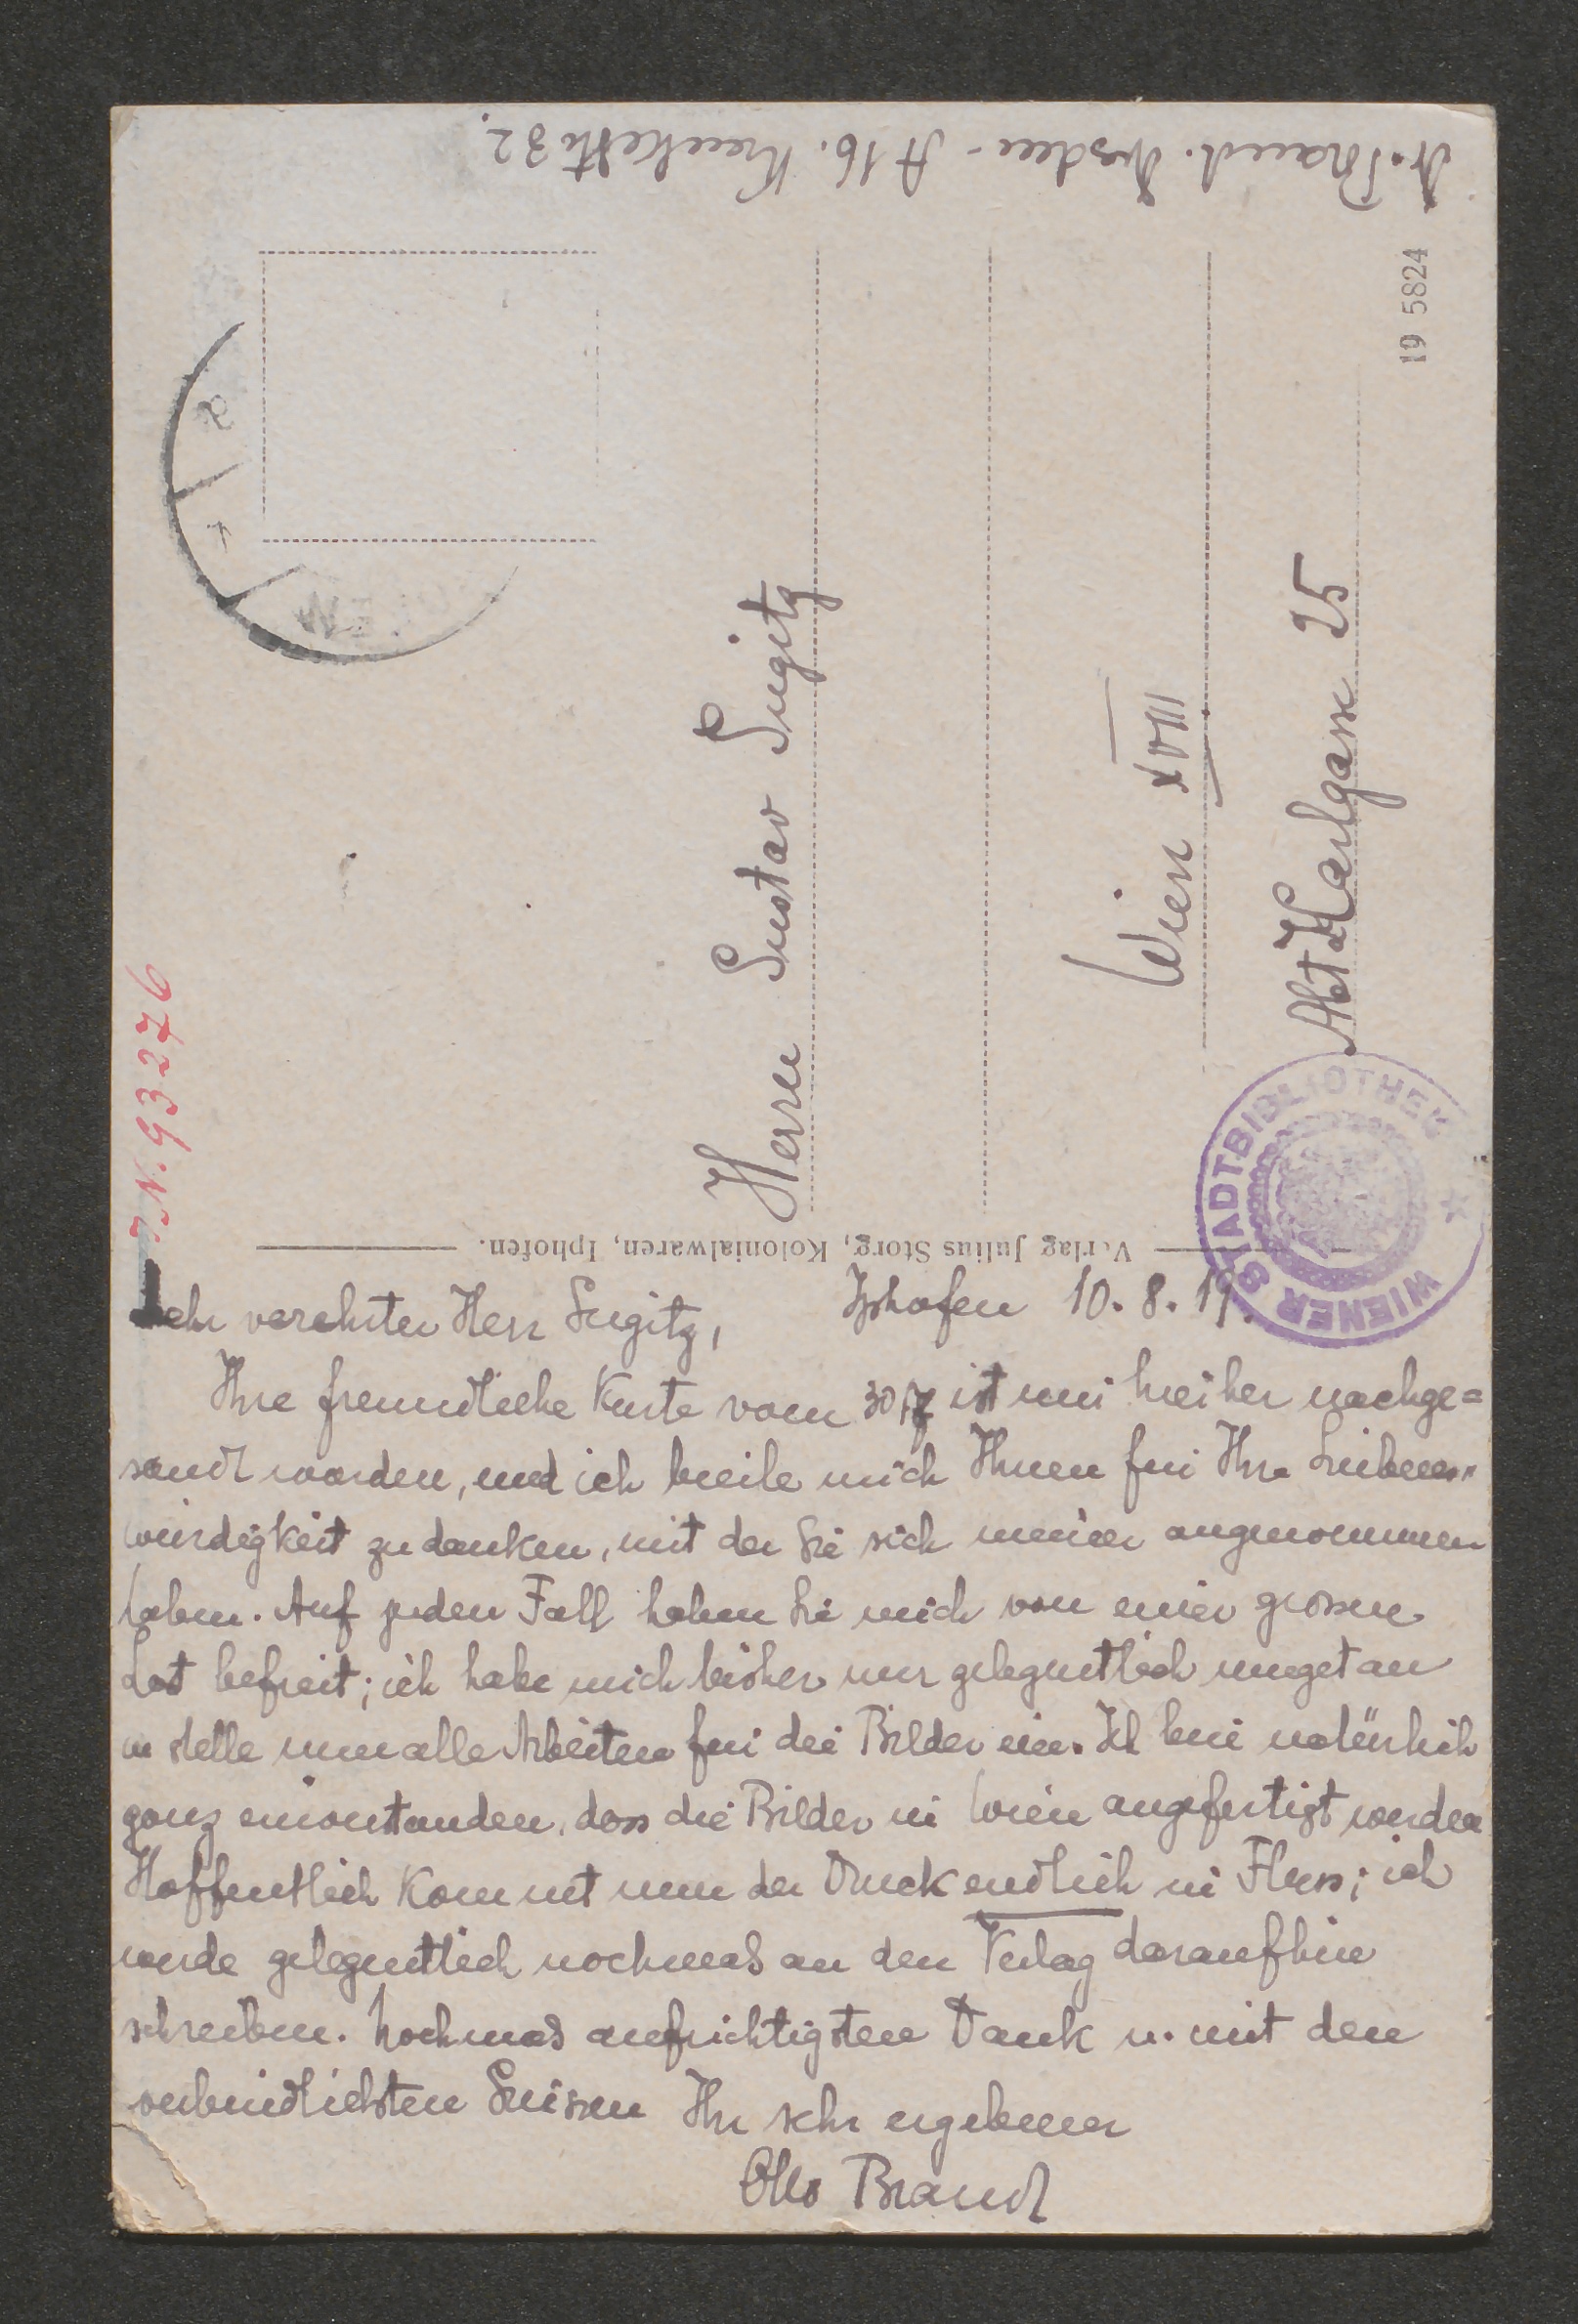 Dr. Brandt. Dresden - A 16. Krenkelstr 32.
19 5824
Herrn Gustav Gugitz
Wien XVIII
Abt Karlgasse 25
I.N. 93276
WIENER STADTBIBLIOTHEK
Verlag Julius Storg, Kolonialwaren, Iphofen.
Iphofen 10. 8. 19.
Sehr verehrter Herr Gugitz,
Ihre freundliche Karte vom 30/7 ist mir hierher nachge=
sandt worden, und ich beeile mich Ihnen für Ihre Liebens=
würdigkeit zu danken, mit der Sie sich meiner angenommen
haben. Auf jeden Fall haben Sie mich von einer grossen
Last befreit; ich habe mich bisher nur gelegentlich umgetan
u stelle nun alle Arbeiten für die Bilder ein. Ich bin natürlich
ganz einverstanden, dass die Bilder in Wien angefertigt werden
Hoffentlich kommt nun der Druck endlich in Fluss; ich
werde gelegentlich nochmals an den Verlag daraufhin
schreiben. Nochmals aufrichtigsten Dank u. mit den
verbindlichsten Grüssen Ihr sehr ergebener
Otto Brandt